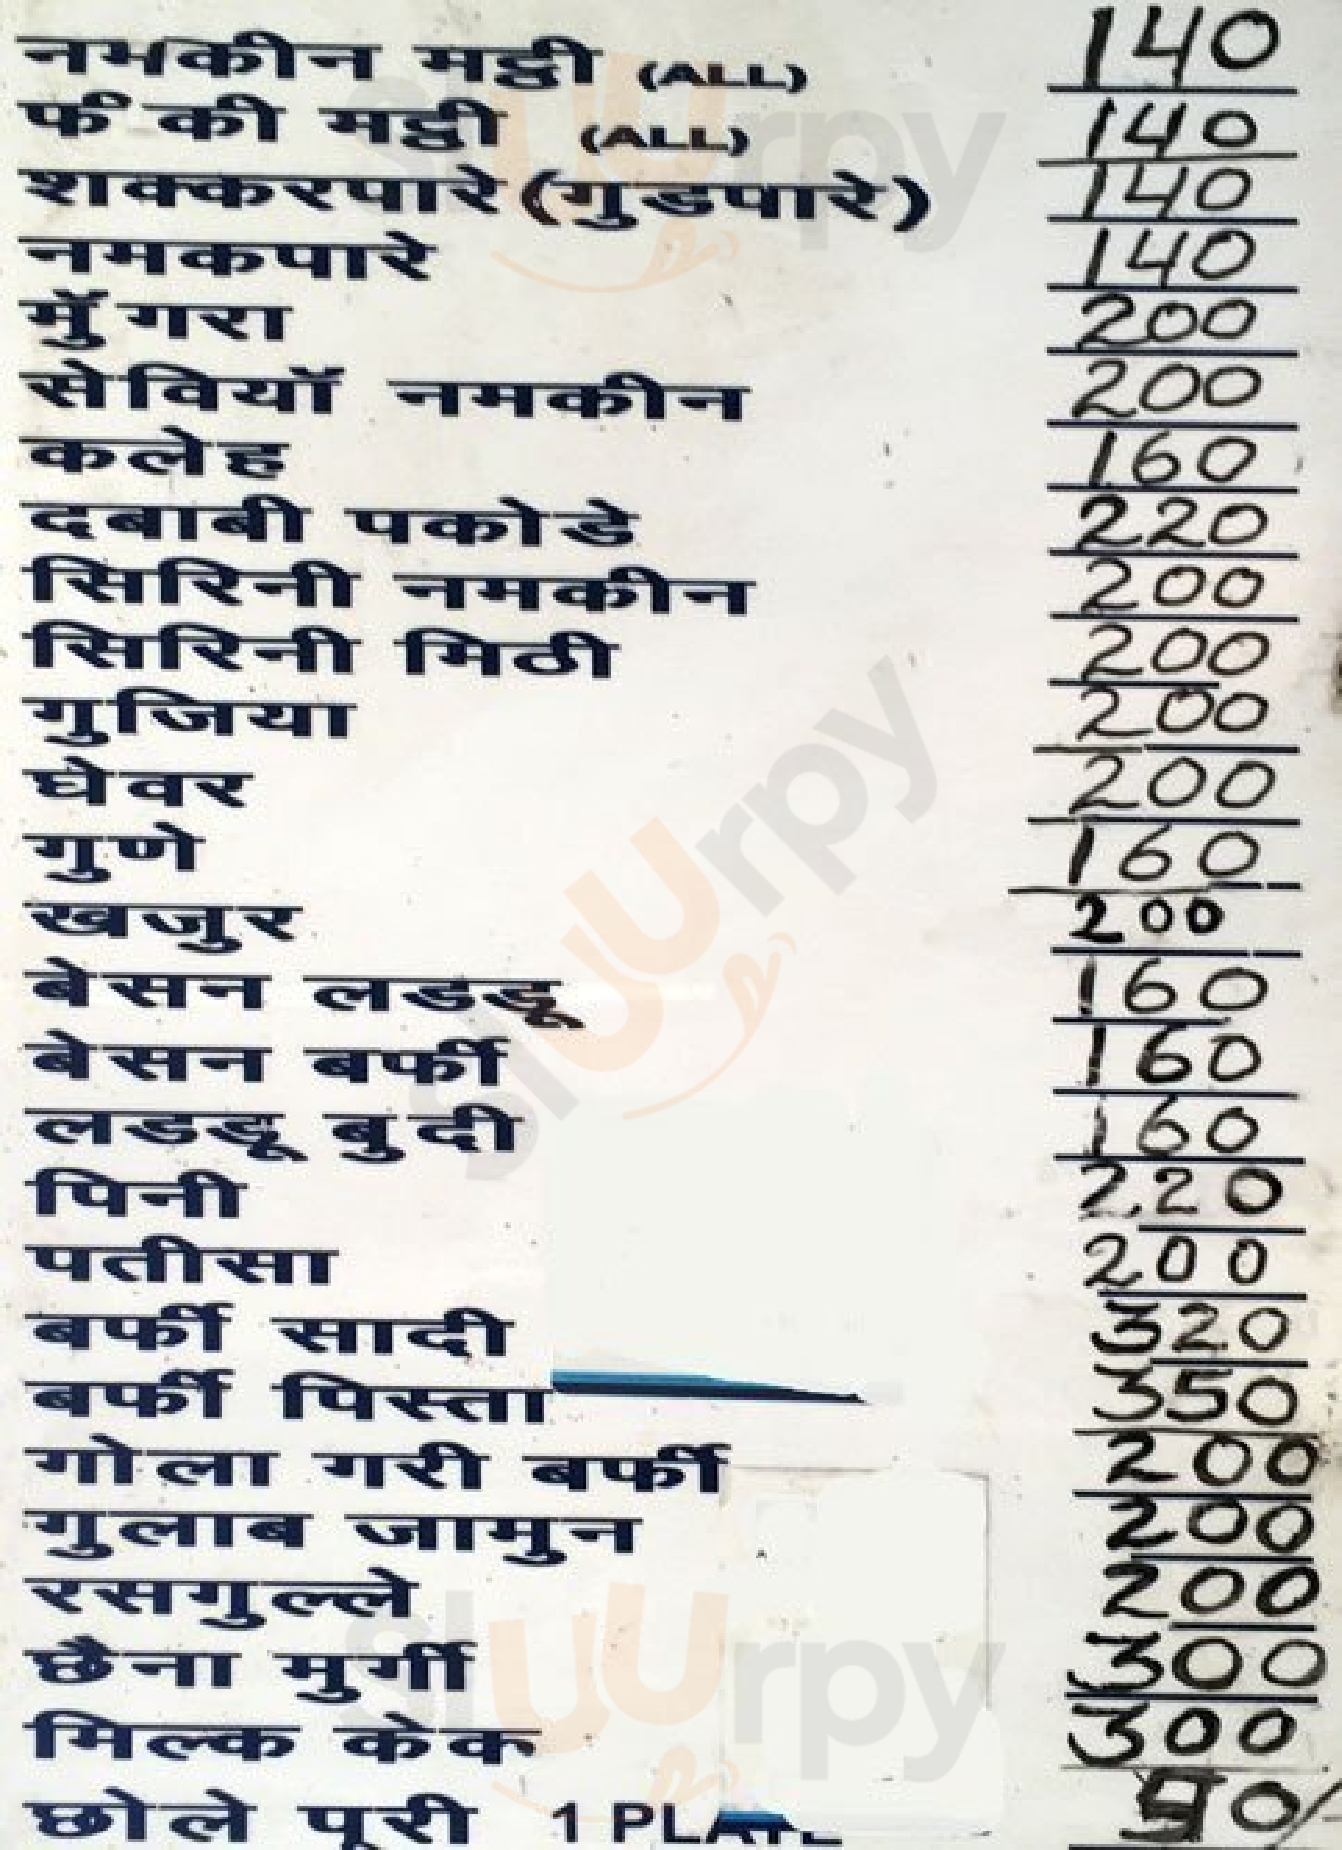 नमकीन मठ्ठी (ALL) 140
फंकी मठ्ठी (ALL) 140
शक्करपारे (गुडपारे) 140
नमकपारे 140
मुँगरा 200
सेवियाँ नमकीन 200
कलेह 160
दबाबी पकोडे 220
सिरिनी नमकीन 200
सिरिनी मिठी 200
गुजिया 200
घेवर 200
गुणे 160
खजुर 200
बेसन लडडू 160
बेसन बर्फी 160
लडडू बुदी 160
पिनी 220
पतीसा 200
बर्फी सादी 320
बर्फी पिस्ता 350
गोला गरी बर्फी 200
गुलाब जामुन 200
रसगुल्ले 200
छैना मुर्गी 300
मिल्क केक 300
छोले पूरी 1 PLATE
sluurpy
sluurpy
sluurpy